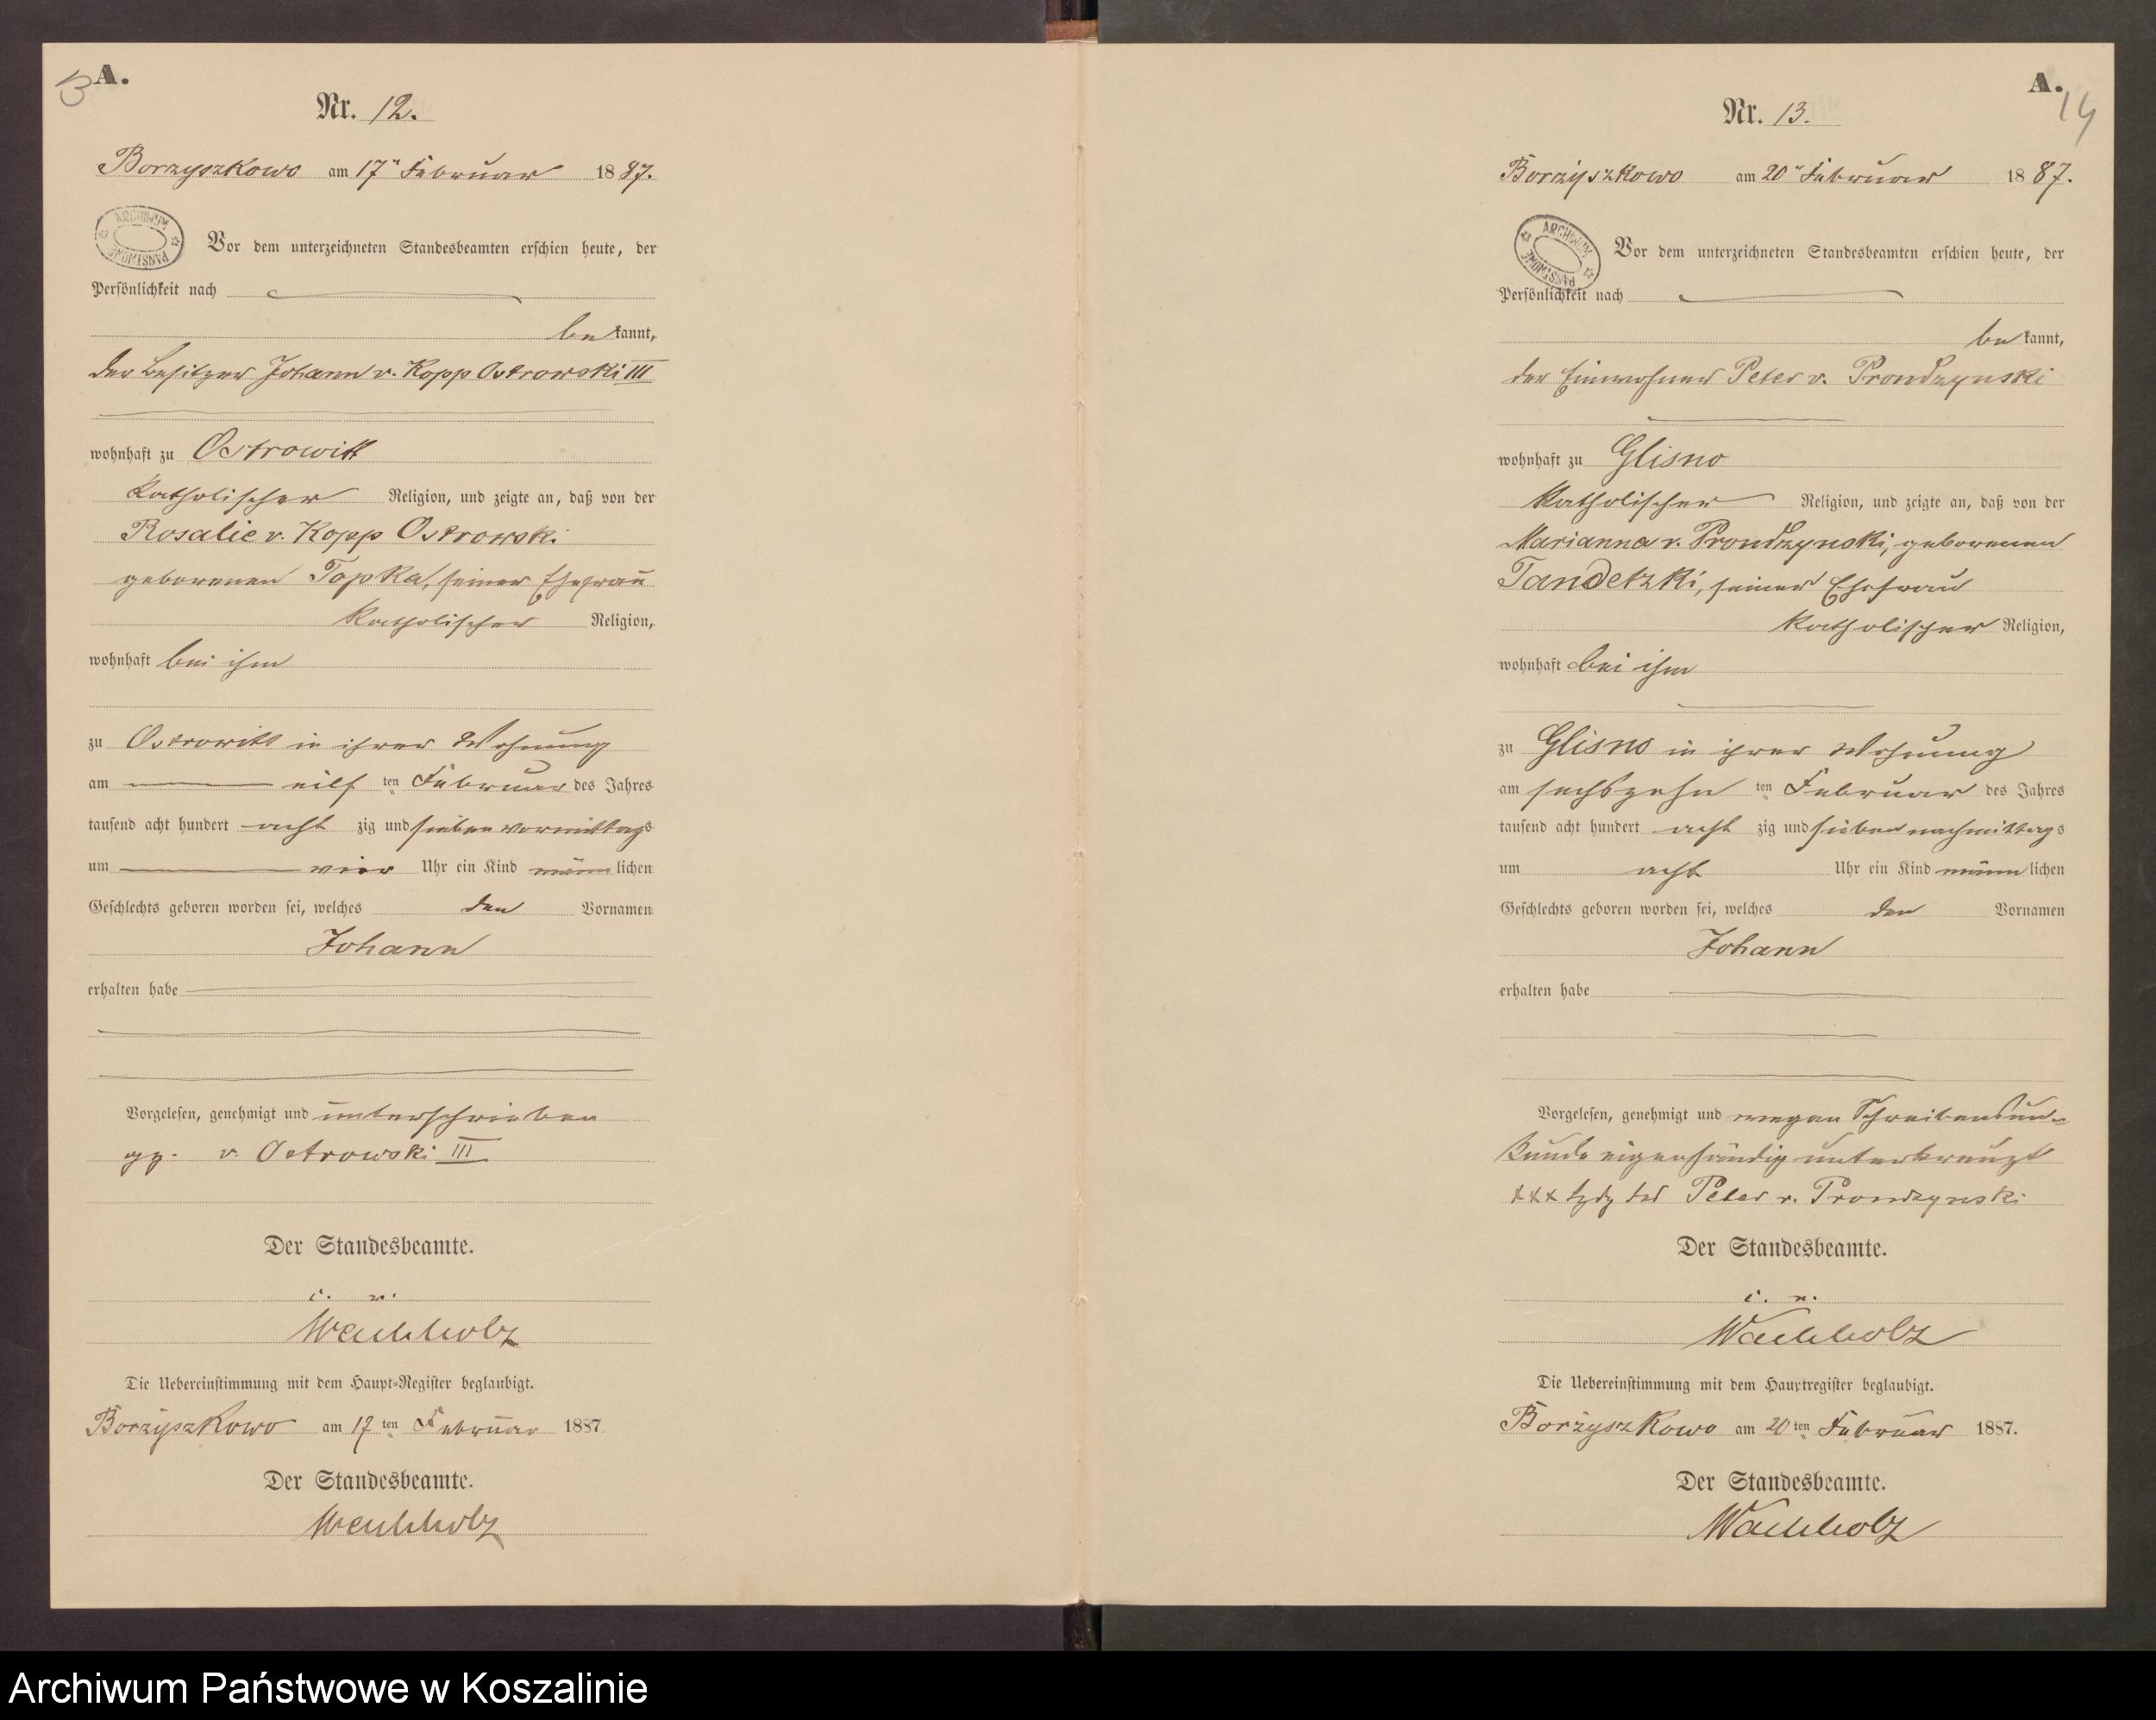 13
A.
Nr. 12.
Borzyszkowo am 17ⁿ Februar 1887.
ARCHIWUM PAŃSTWOWE
Vor dem unterzeichneten Standesbeamten erschien heute, der
Persönlichkeit nach
bekannt,
der Besitzer Johann v. Kopp Ostrowski III
wohnhaft zu Ostrowitt
katholischer Religion, und zeigte an, daß von der
Rosalie v. Kopp Ostrowski
geborenen Topka, seiner Ehefrau
katholischer Religion,
wohnhaft bei ihm
zu Ostrowitt in ihrer Wohnung
am eilf ten Februar des Jahres
tausend acht hundert acht zig und sieben vormittags
um vier Uhr ein Kind männlichen
Geschlechts geboren worden sei, welches den Vornamen
Johann
erhalten habe
Vorgelesen, genehmigt und unterschrieben
gz. v. Ostrowski III
Der Standesbeamte.
i. v.
Wachholz
Die Uebereinstimmung mit dem Haupt-Register beglaubigt.
Borzyszkowo am 17ten Februar 1887.
Der Standesbeamte.
Wachholz
A.
14
Nr. 13.
Borzyszkowo am 20ⁿ Februar 1887.
ARCHIWUM PAŃSTWOWE
Vor dem unterzeichneten Standesbeamten erschien heute, der
Persönlichkeit nach
bekannt,
der Einwohner Peter v. Prondzynski
wohnhaft zu Glisno
katholischer Religion, und zeigte an, daß von der
Marianna v. Prondzynski, geborenen
Tandetzki, seiner Ehefrau
katholischer Religion,
wohnhaft bei ihm
zu Glisno in ihrer Wohnung
am sechszehn ten Februar des Jahres
tausend acht hundert acht zig und sieben nachmittags
um acht Uhr ein Kind männlichen
Geschlechts geboren worden sei, welches den Vornamen
Johann
erhalten habe
Vorgelesen, genehmigt und wegen Schreibensun-
kunde eigenhändig unterkreuzt
+++ des Peter v. Prondzynski
Der Standesbeamte.
i. v.
Wachholz
Die Uebereinstimmung mit dem Hauptregister beglaubigt.
Borzyszkowo am 20ten Februar 1887.
Der Standesbeamte.
Wachholz
Archiwum Państwowe w Koszalinie